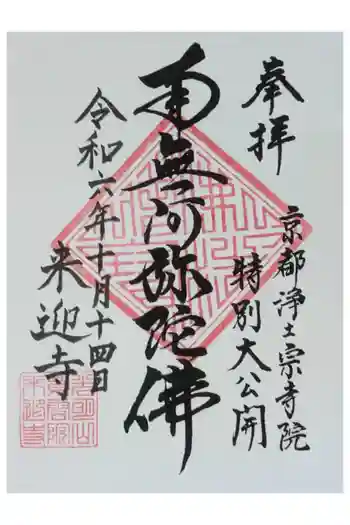 奉拝
京都浄土宗寺院
特別大公開
南無阿弥陀佛
令和六年十月十四日
来迎寺